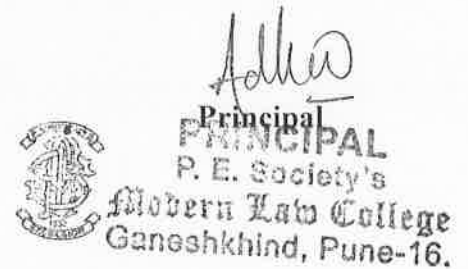 Principal
PRINCIPAL
P. E. Society's
Modern Law College
Ganeshkhind, Pune-16.